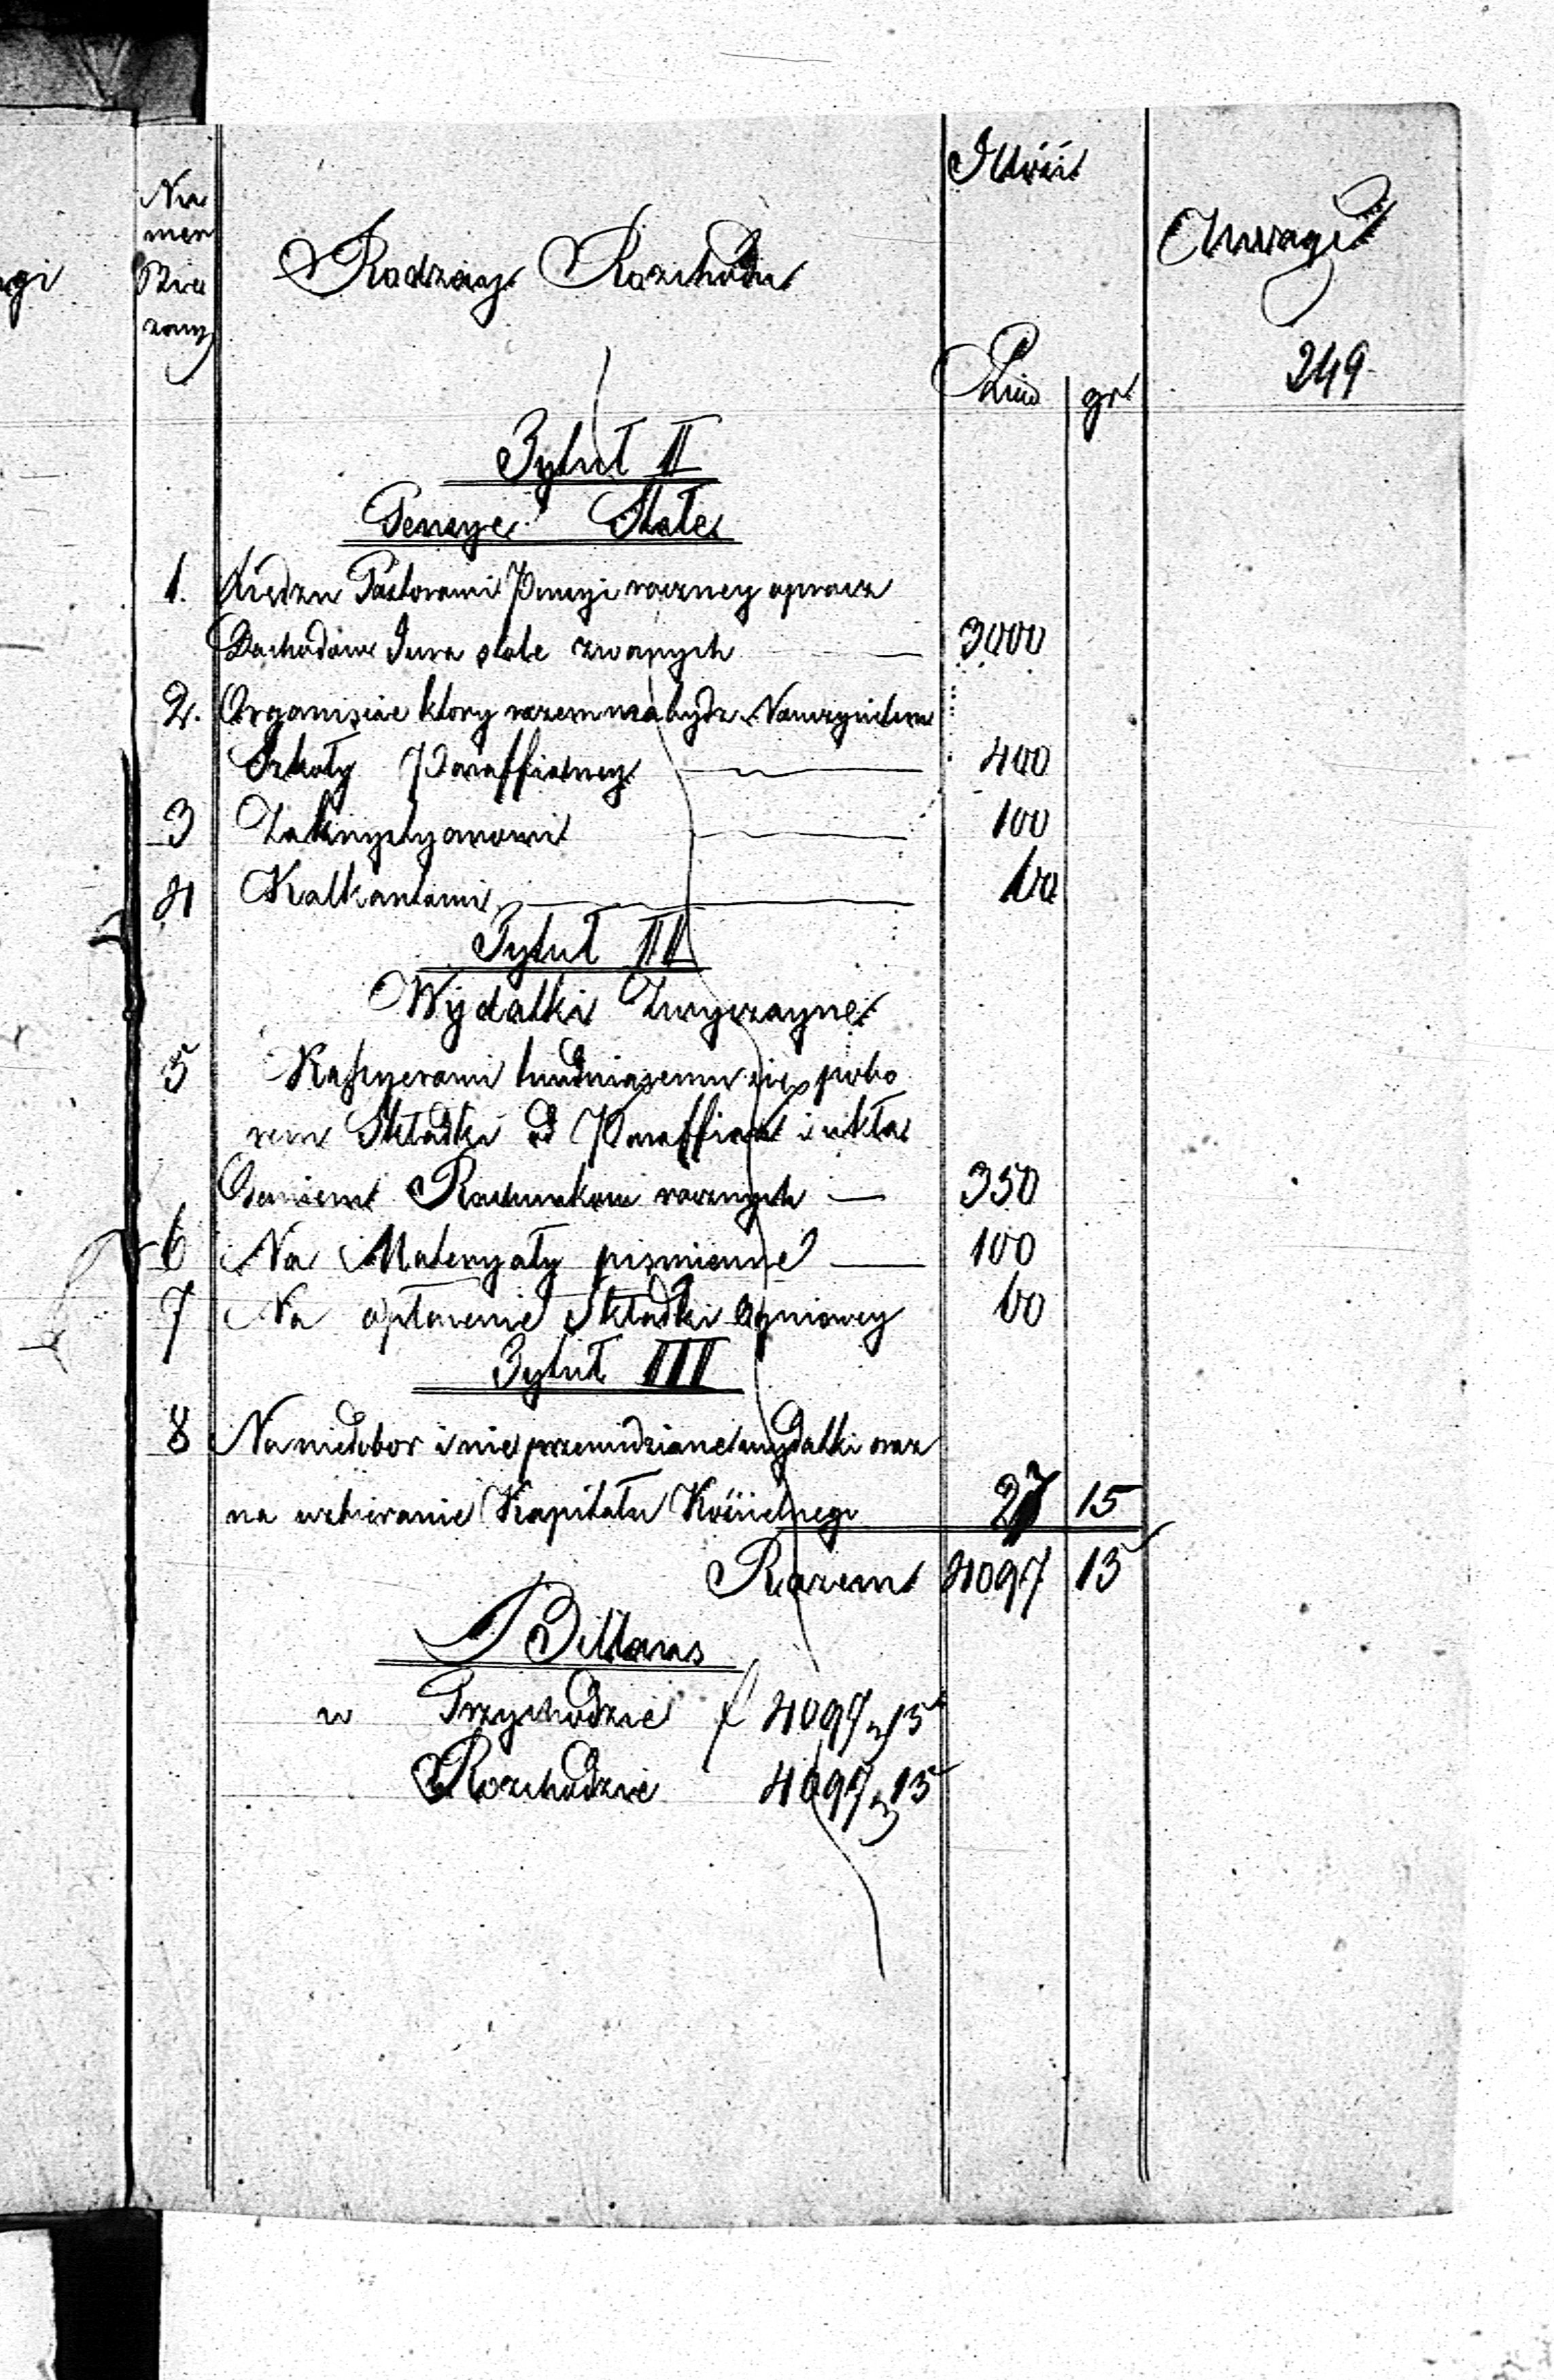 Nu
mer
Bieżą
żący
Rodzay Rozchodu
Ilość
Uwagi
Złp
gr
249
Tytuł II
Pensye Stałe
1. Xiędzu Pastorowi Pensyi roczney oprocz
Dochodow Jura stole zwanych 3000
2. Organiście ktory razem ma bydz Nauczycielem
Szkoły Paraffialney 400
3 Zakrystyanowi 100
4 Kalkantowi 60
Tytuł II
Wydatki Zwyczayne
5 Kassyerowi trudniącemu się pobo
rem Składki od Paraffian i ukła
daniem Rachunkow rocznych 350
6 Na Materyały pismienne 100
7 Na opłacenie Składki ogniowey 60
Tytuł III
8 Na niedobor i nie przewidziane wydatki oraz
na uzbieranie Kapitału Kościelnego 27 15
Razem 4097 15
Billans
w Przychodzie f 4097 „ 15
Rozchodzie 4097 „ 15